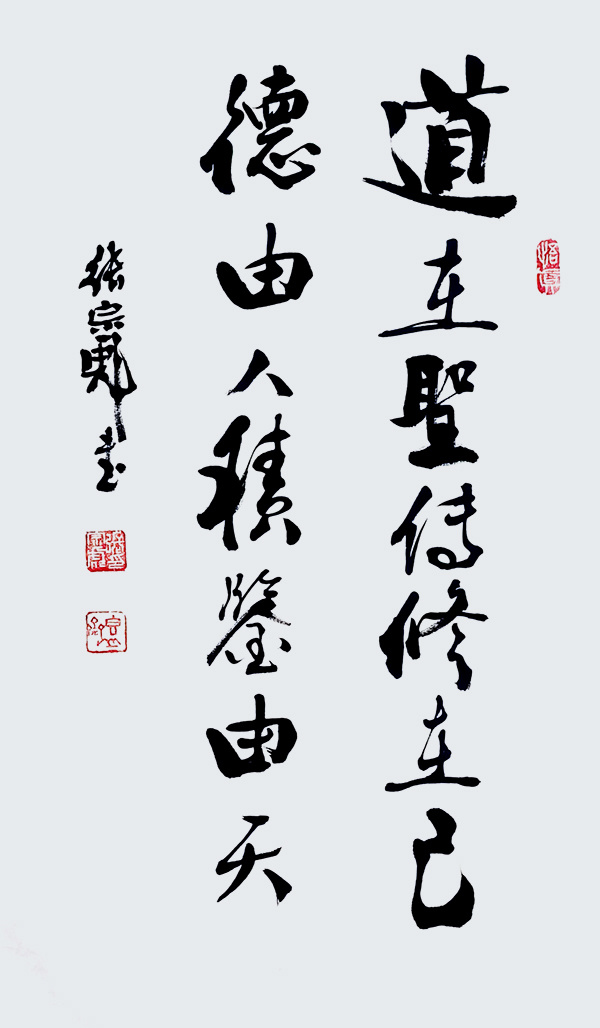 道在聖傳修在己
德由人積鑒由天
張宗彪書